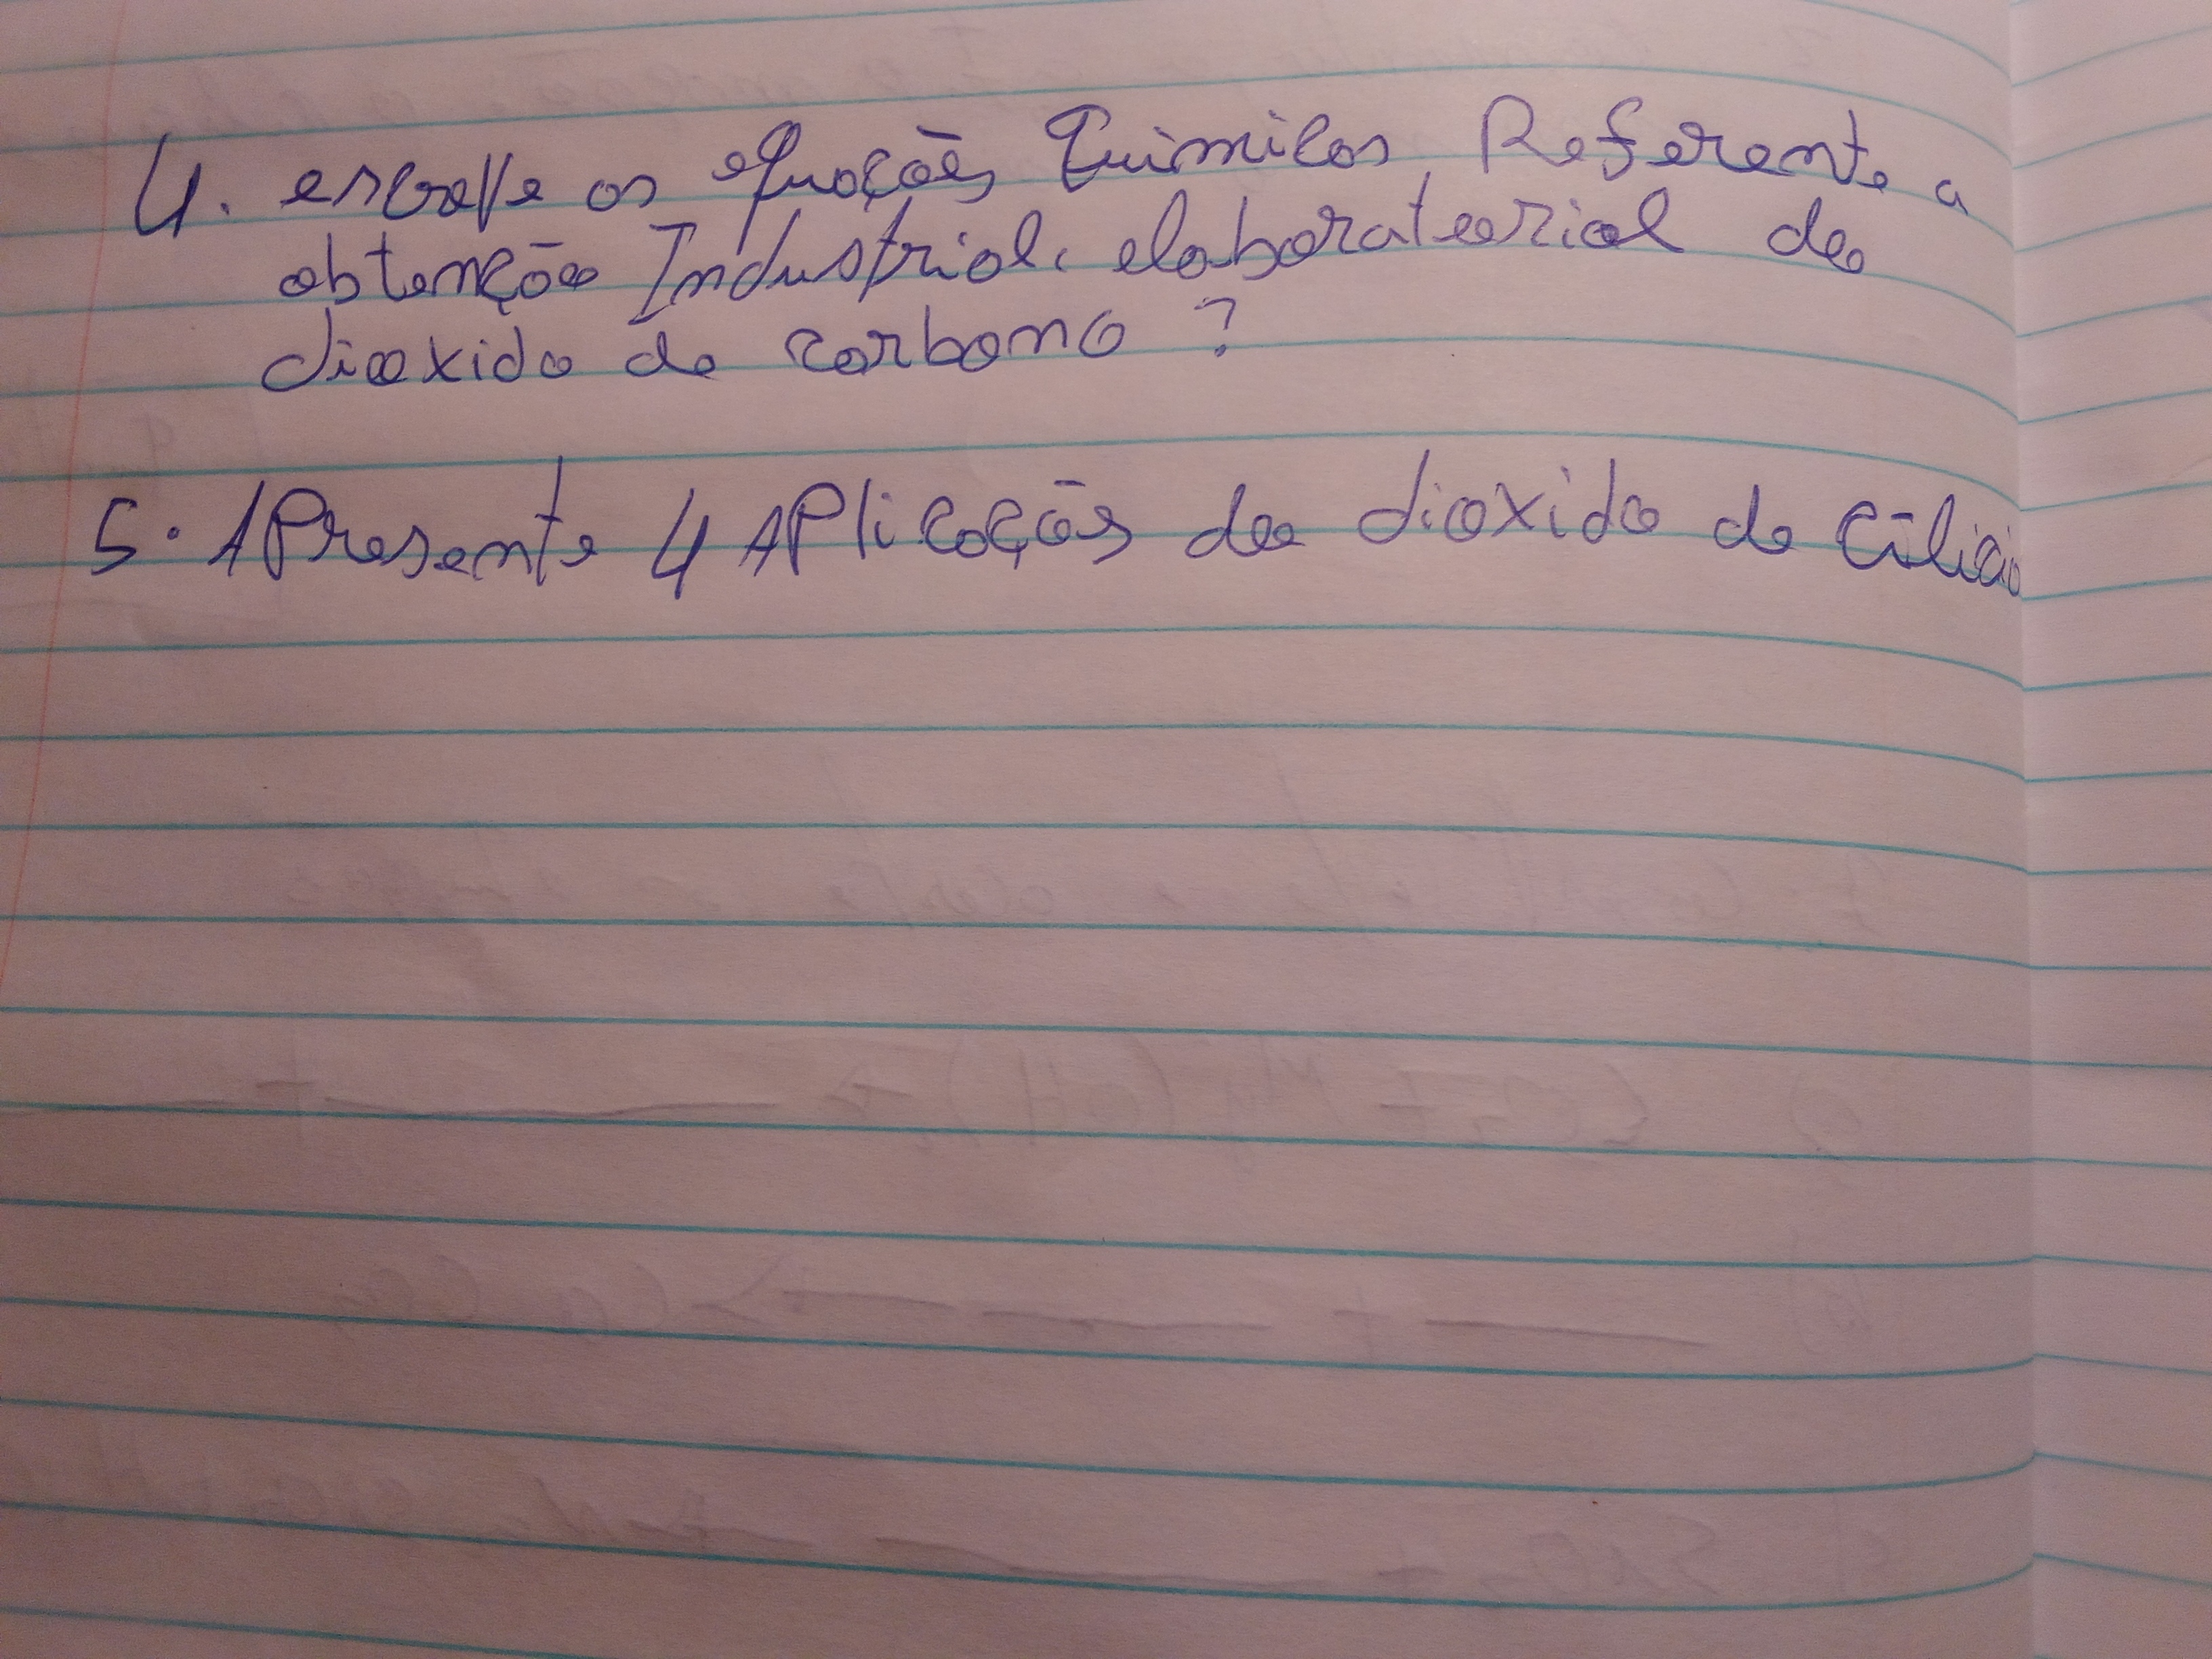 4. escreve as equações Quimicas Referente a
obtenção Industrial. elaborateorial do
dioxido de carbono ?
5. APresente 4 APlicações do dioxido de Cilicio